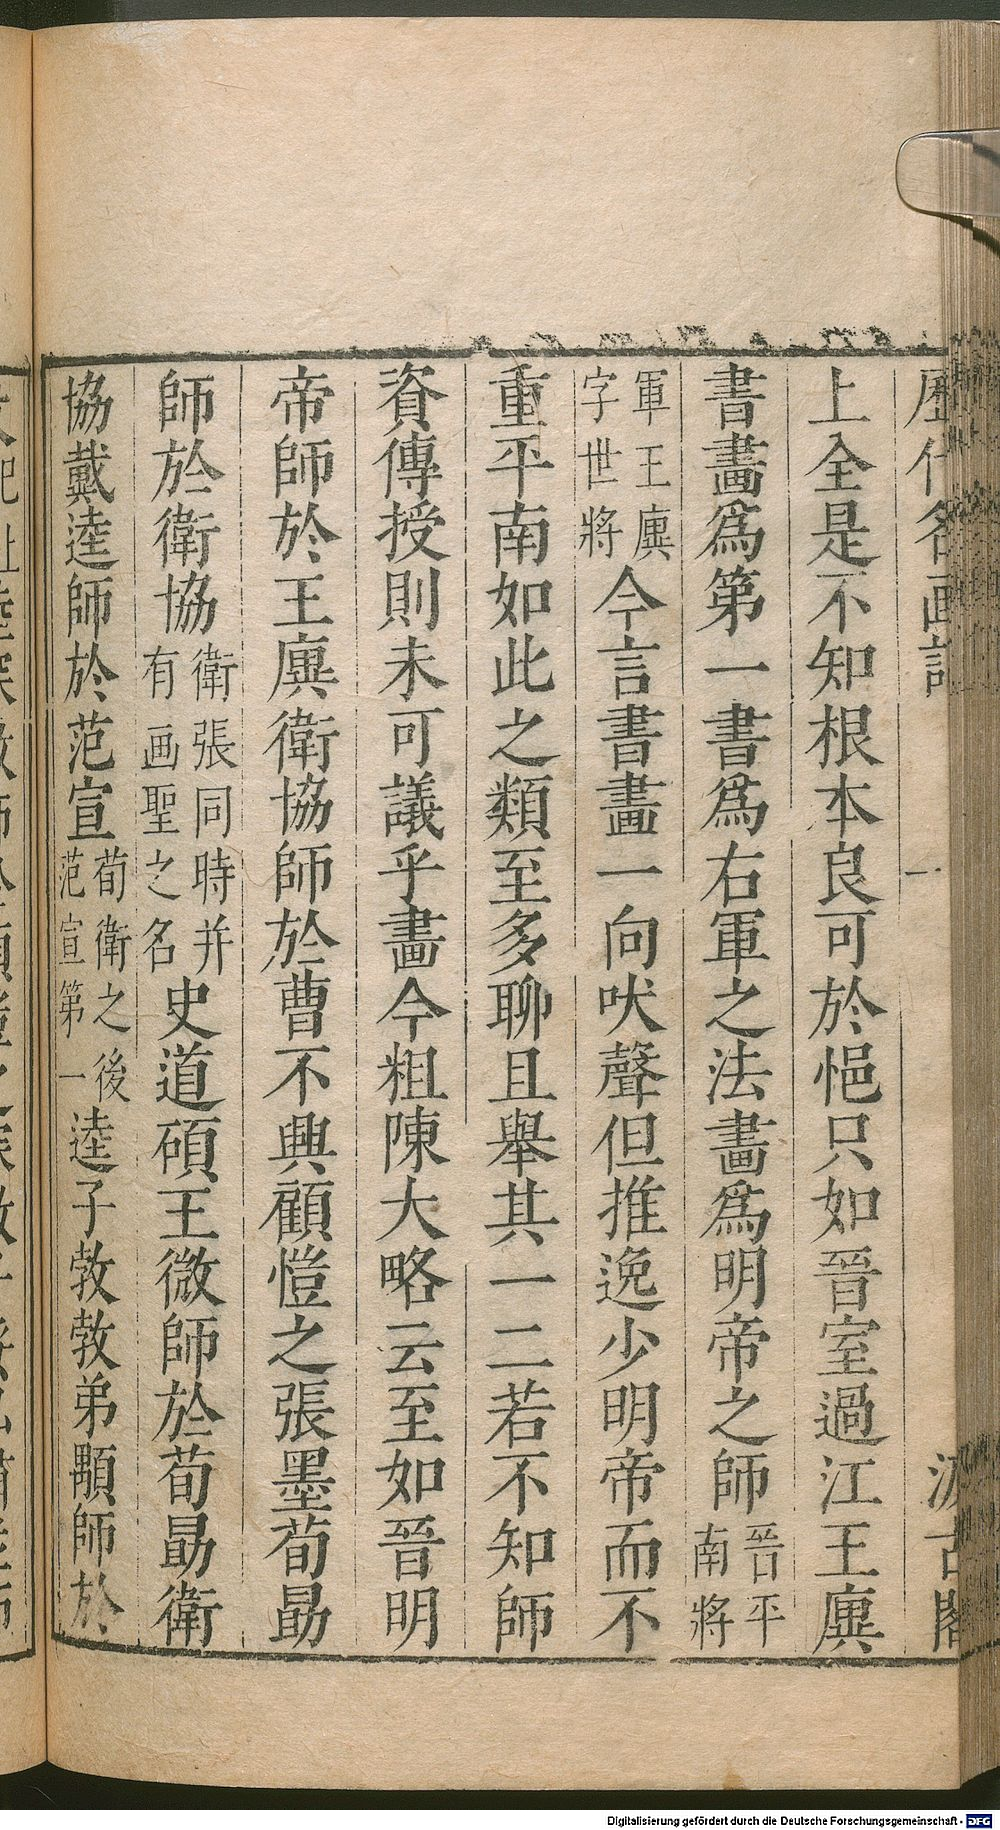 歷代名画記 一 汲古閣
上全是不知根本良可於悒只如晉室過江王廙
書畫為第一書為右軍之法畫為明帝之師晉平南將
軍王廙字世將今言書畫一向吠聲但推逸少明帝而不
重平南如此之類至多聊且舉其一二若不知師
資傳授則未可議乎畫今粗陳大略云至如晉明
帝師於王廙衛協師於曹不興顧愷之張墨荀勗
師於衛協衛張同時并有画聖之名史道碩王微師於荀勗衛
協戴逵師於范宣荀衛之後范宣第一逵子敦敦弟顒師於
Digitalisierung gefördert durch die Deutsche Forschungsgemeinschaft - DFG